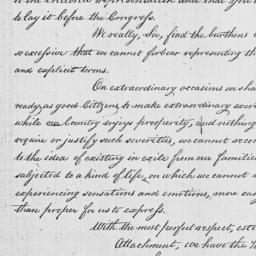 to lay it before the Congress.
We really, Sir, find the burthens
so excessive that we cannot forbear representing th
and explicit terms.
On extraordinary occasions we sha
ready, as good Citizens, to make extraordinary exer
while our Country enjoys prosperity, and nothing
require or justify such severities, we cannot recon
to the idea of existing in exile from our families
subjected to a kind of life, on which we cannot
experiencing sensations and emotions, more eas
than proper for us to express.
With the most perfect respect, este
Attachment, we have the H